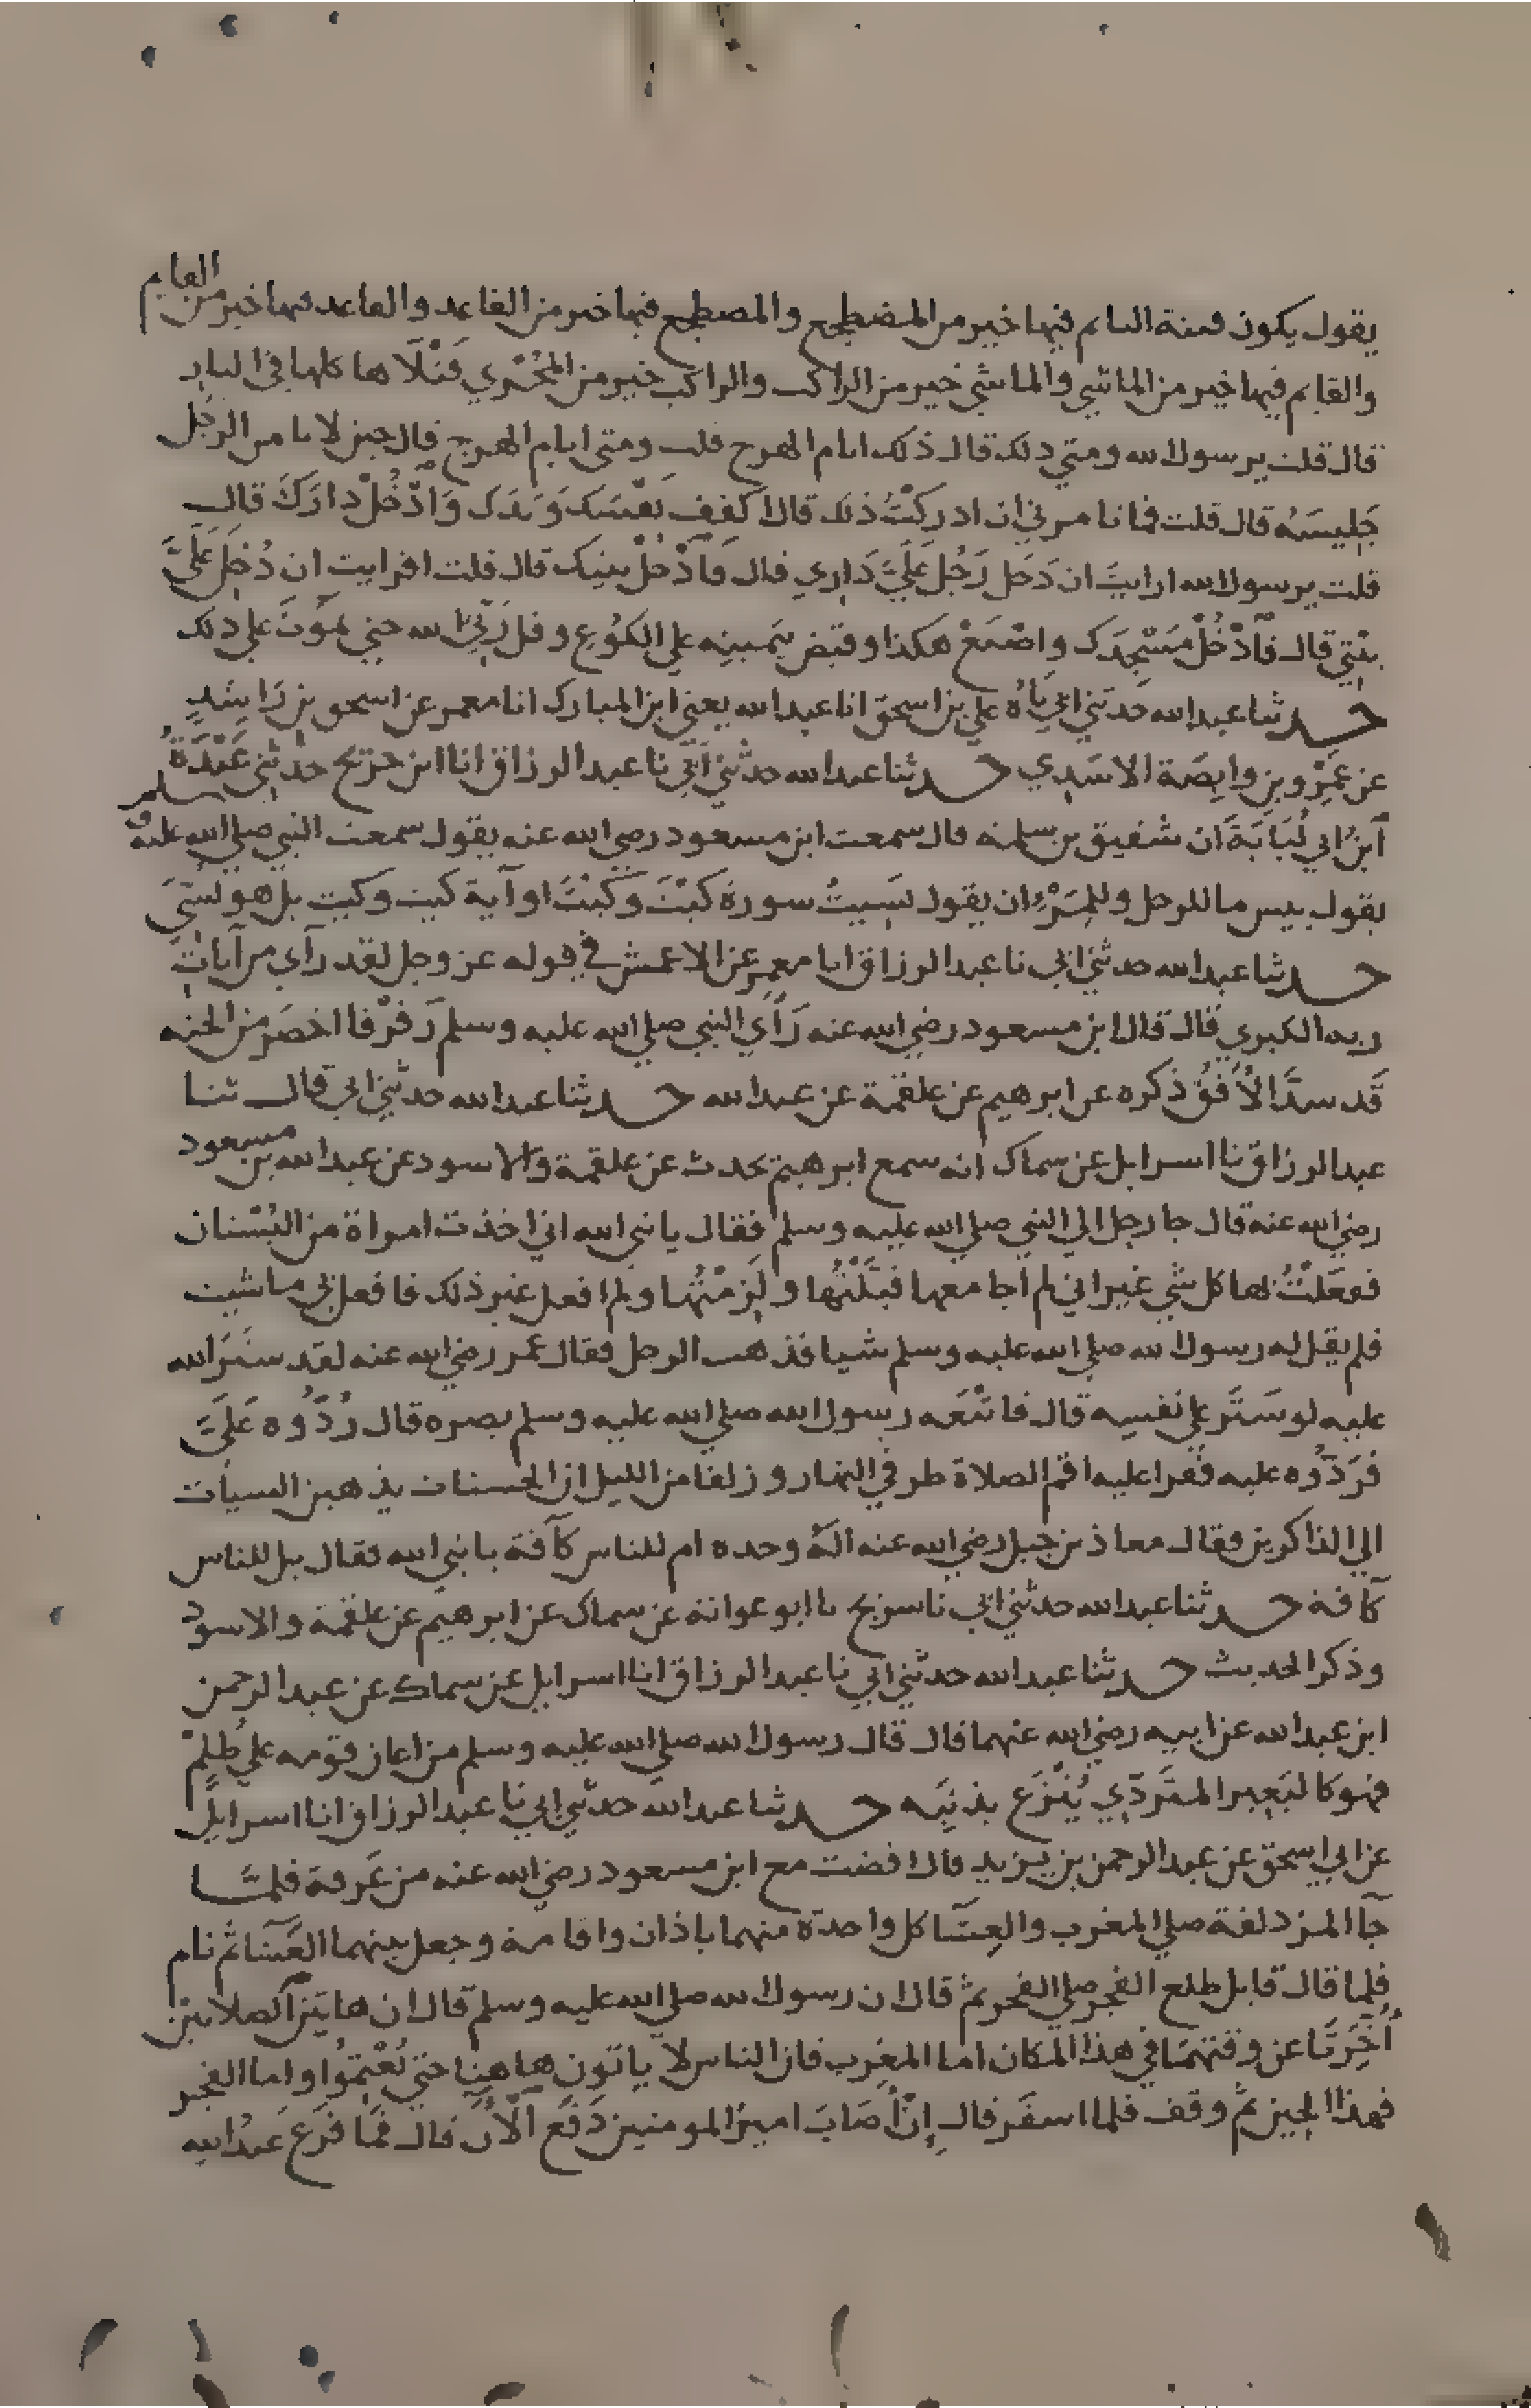 يقول يكون فتنة النايم فيها خير من المضطجع والمضطجع فيها خير من القاعد والقاعد فيها خير من القايم
والقايم فيها خير من الماشي والماشي خير من الراكب والراكب خير من المجري قتلاها كلها في النار
قال قلت يرسول الله ومتي ذلك قال ذلك ايام الهرج قلت ومتي ايام الهرج قال حين لا يامن الرجل
جليسه قال قلت فما تامرني ان ادركت ذلك قال اكفف نفسك ويدك وادخل دارك قال
قلت يرسول الله ارايت ان دخل رجل علي داري قال فادخل بيتك قال قلت افرايت ان دخل علي
بيتي قال فادخل مسجدك واصنع هكذا وقبض بيمينه علي الكوع وقل ربي الله حتي تموت علي ذلك
حدثنا عبد الله حدثني ابي ناه علي بن اسحق انا عبد الله يعني ابن المبارك انا معمر عن اسحق بن راشد
عن عمرو بن وابصة الاسدي حدثنا عبد الله حدثني ابي نا عبد الرزاق انا ابن جريج حدثني عبدة
ابن ابي لبابة ان شقيق بن سلمة قال سمعت ابن مسعود رضي الله عنه يقول سمعت النبي صلي الله عليه وسلم
يقول بيس ما للرجل وللمرء ان يقول نسيت سورة كيت وكيت او آية كيت وكيت بل هو نسي
حدثنا عبد الله حدثني ابي نا عبد الرزاق انا معمر عن الاعمش في قوله عز وجل لقد رآي من آيات
ربه الكبري قال قال ابن مسعود رضي الله عنه رأي النبي صلي الله عليه وسلم رفرفا اخضر من الجنه
قد سد الأفق ذكره عن ابرهيم عن علقمة عن عبد الله حدثنا عبد الله حدثني ابي قال ثنا
عبد الرزاق نا اسرايل عن سماك انه سمع ابرهيم يحدث عن علقمة والاسود عن عبد الله بن مسعود
رضي الله عنه قال جا رجل الي النبي صلي الله عليه وسلم فقال يا نبي الله اني اخذت امراة من البستان
ففعلت بها كل شي غير اني لم اجامعها قبلتها ولزمتها ولم افعل غير ذلك فافعل بي ما شيت
فلم يقل له رسول الله صلي الله عليه وسلم شيا فذهب الرجل فقال عمر رضي الله عنه لقد ستر الله
عليه لو ستر علي نفسه قال فاتبعه رسول الله صلي الله عليه وسلم بصره قال ردوه علي
فردوه عليه فقرا عليه اقم الصلاة طرفي النهار وزلفا من الليل ان الحسنات يذهبن السيات
الي الذاكرين فقال معاذ بن جبل رضي الله عنه اله وحده ام للناس كآفة يا نبي الله فقال بل للناس
كآفة حدثنا عبد الله حدثني ابي نا سريج نا ابو عوانة عن سماك عن ابرهيم عن علقمة والاسود
وذكر الحديث حدثنا عبد الله حدثني ابي نا عبد الرزاق انا اسرايل عن سماك عن عبد الرحمن
ابن عبد الله عن ابيه رضي الله عنهما قال قال رسول الله صلي الله عليه وسلم من اعان قومه علي ظلم
فهو كالبعير المتردي ينزع بذنبه حدثنا عبد الله حدثني ابي نا عبد الرزاق انا اسرايل
عن ابي اسحق عن عبد الرحمن بن يزيد قال افضت مع ابن مسعود رضي الله عنه من عرفة فلما
جآ المزدلفة صلي المغرب والعشا كل واحدة منهما باذان واقامة وجعل بينهما العشآ ثم نام
فلما قال قايل طلع الفجر صلي الفجر ثم قال ان رسول الله صلي الله عليه وسلم قال ان هاتين الصلاتين
أخرتا عن وقتهما في هذا المكان اما المغرب فان الناس لا ياتون هاهنا حتي يعتموا واما الفجر
فهذا الحين ثم وقف فلما اسفر قال إن أصاب امير المومنين دفع الآن قال فما فرغ عبد الله